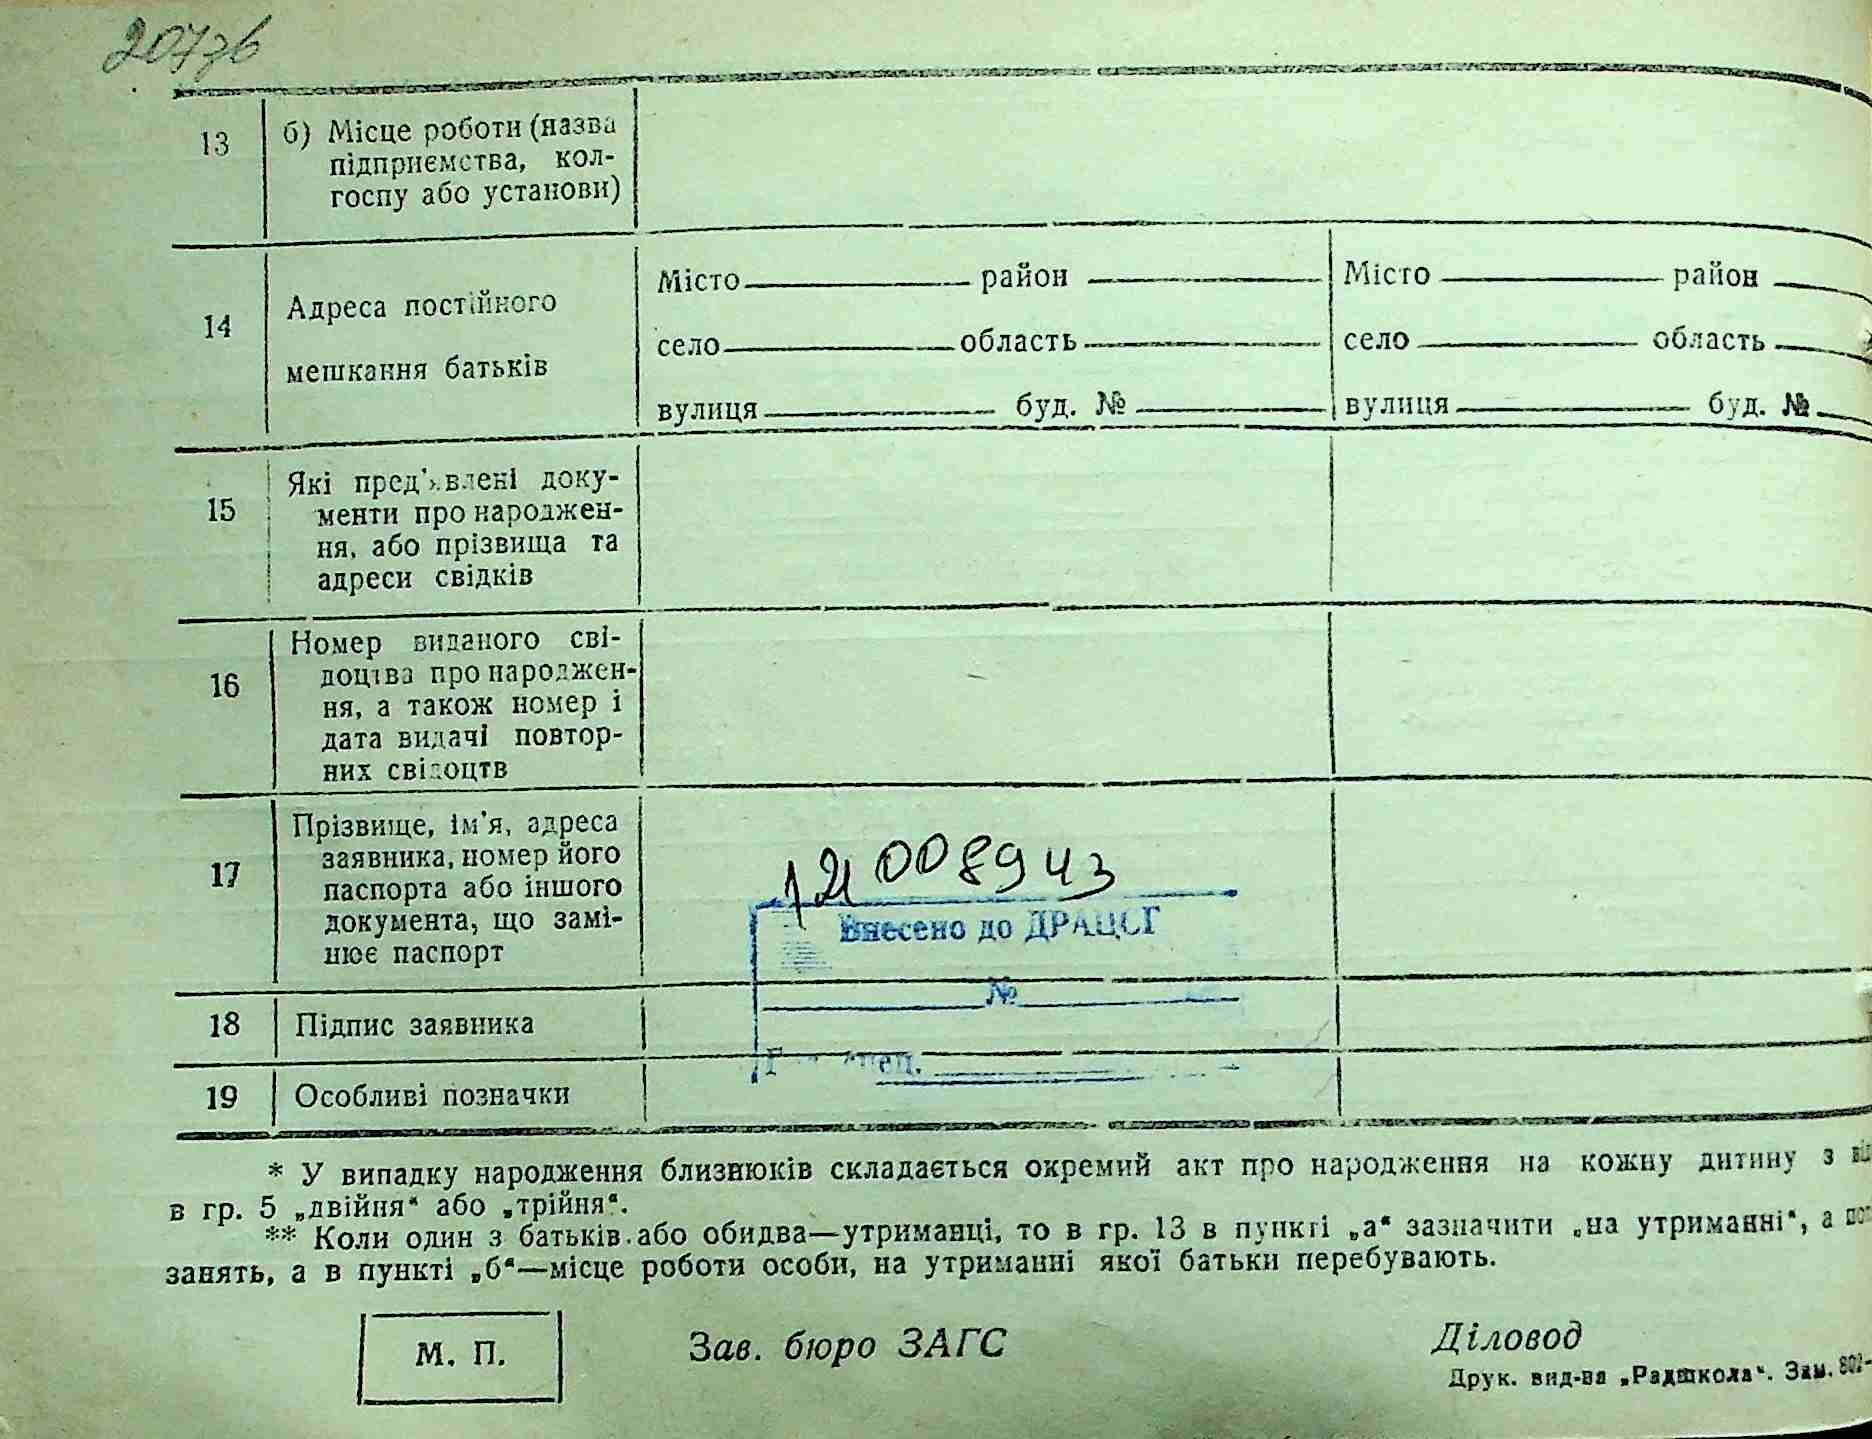 207зв
13 б) Місце роботи (назва
підприємства, кол-
госпу або установи)
14 Адреса постійного
мешкання батьків
Місто район
село область
вулиця буд. №
Місто район
село область
вулиця буд. №
15 Які пред'явлені доку-
менти про народжен-
ня, або прізвища та
адреси свідків
16 Номер виданого сві-
доцтва про народжен-
ня, а також номер і
дата видачі повтор-
них свідоцтв
17 Прізвище, ім'я, адреса
заявника, номер його
паспорта або іншого
документа, що замі-
нює паспорт
008943
Внесено до ДРАЦСГ
№
спец.
18 Підпис заявника
19 Особливі позначки
* У випадку народження близнюків складається окремий акт про народження на кожну дитину з
в гр. 5 „двійня“ або „трійня“.
** Коли один з батьків або обидва—утриманці, то в гр. 13 в пункті „а“ зазначити „на утриманні“, а
занять, а в пункті „б“—місце роботи особи, на утриманні якої батьки перебувають.
М. П. Зав. бюро ЗАГС Діловод
Друк. вид-ва „Радшкола“. Зам. 802-